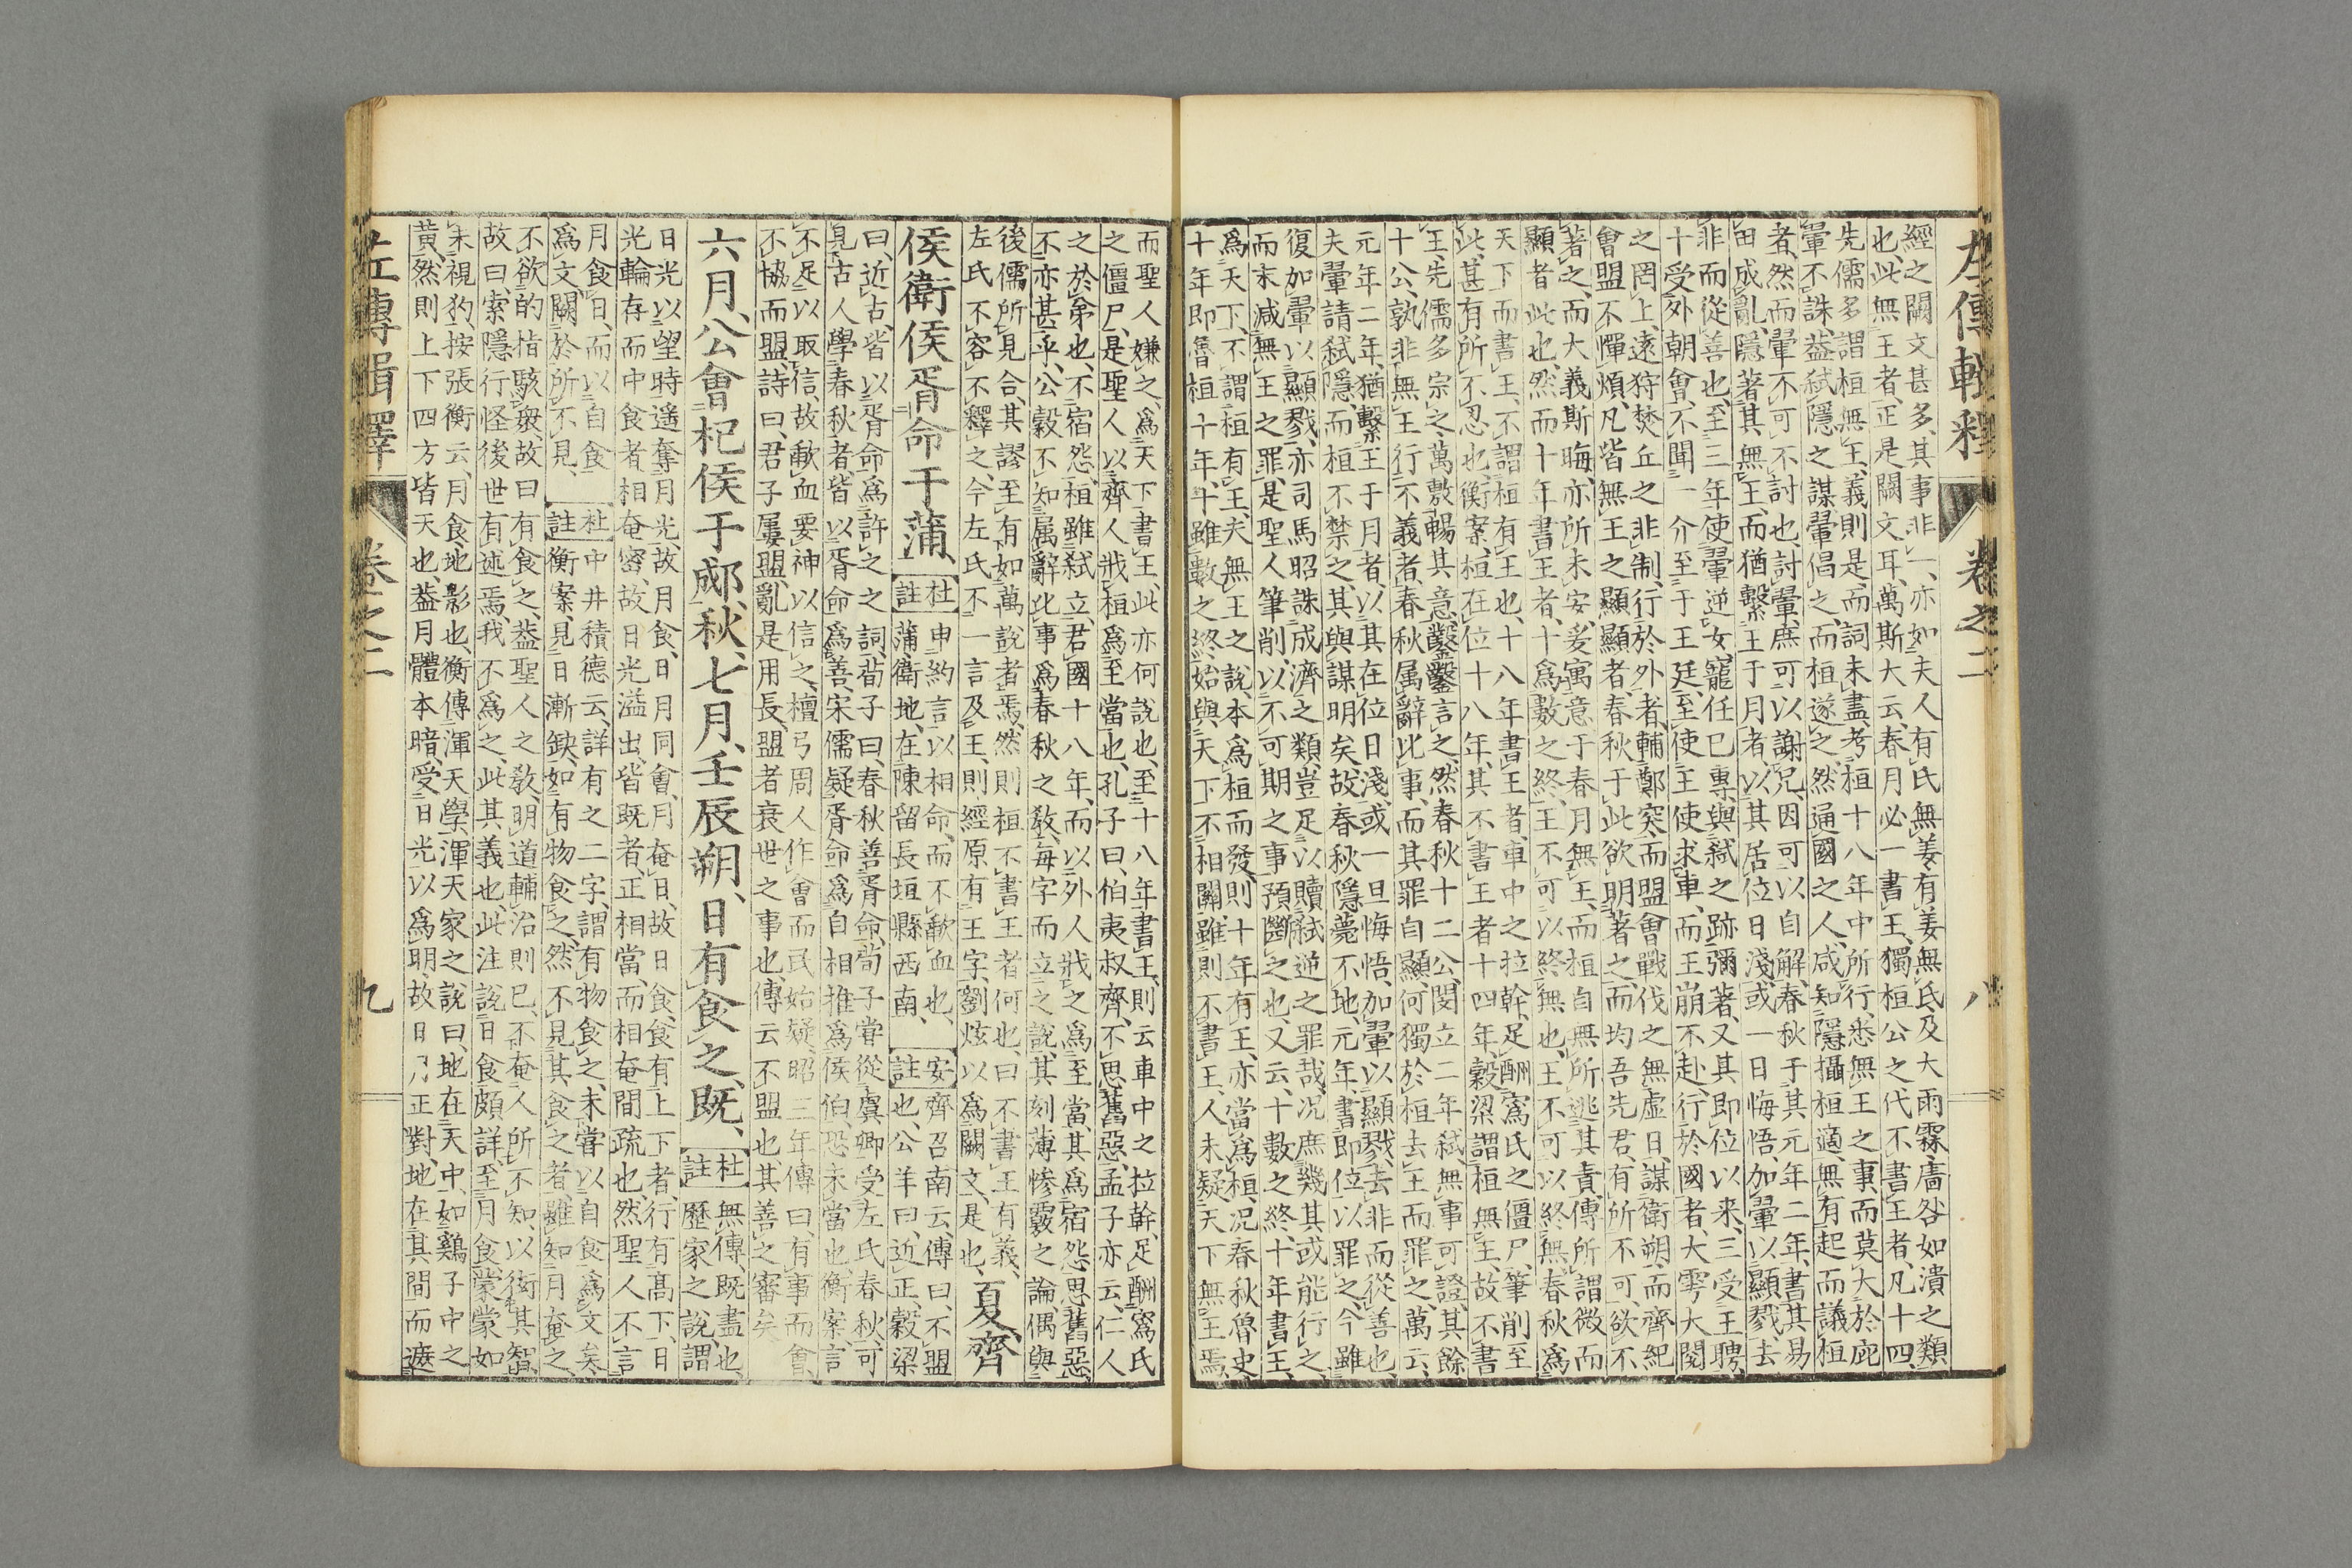 左傳輯釋 卷之二 八
經之闕文甚多、其事非一、亦如夫人有氏無姜、有姜無氏、及大雨霖、廧咎如潰之類
也、此無王者、正是闕文耳、萬斯大云、春月必一書王、獨桓公之代、不書王者、凡十四、
先儒多謂桓無王、義則是、而詞未盡、考桓十八年中所行、悉無王之事、而莫大於庇
翬不誅、蓋弑隱之謀、翬倡之、而桓遂之、然通國之人、咸知隱攝桓適、無有起而議桓
者、然而翬不可不討也、討翬、庶可以謝兄、因可以自解、春秋于其元年二年、書其易
田成亂、隱著其無王、而猶繫王于月者、以其居位日淺、或一日悔悟、加翬以顯戮、去
非而從善也、至三年使翬逆女、寵任已專、與弑之跡彌著、又其即位以来、三受王聘、
十受外朝會、不聞一介至于王廷、至使王使求車、而王崩不赴、行於國者、大雩大閱
之罔上、遠狩焚丘之非制、行於外者、輔鄭突、而盟會戰伐之無虚日、謀衛朔、而齊紀
會盟不憚煩、凡皆無王之顯者、春秋于此欲明著之、而均吾先君、有所不可、欲不
著之、而大義斯晦、亦所未安、爰寓意于春月無王、而桓自無所逃其責、傳所謂微而
顯者此也、然而十年書王者、十爲數之終、王不可以終無也、王不可以終無、春秋爲
天下而書王、不謂桓有王也、十八年書王者、車中之拉幹、足酬寪氏之僵尸、筆削至
此、甚有所不忍也、衡案、桓在位十八年、其不書王者十四年、穀梁謂桓無王、故不書
王、先儒多宗之、萬敷暢其意、鑿鑿言之、然春秋十二公、閔立二年弑、無事可證、其餘
十公孰非無王行不義者、春秋属辭比事、而其罪自顯、何獨於桓去王而罪之、萬云、
元年二年、猶繫王于月者、以其在位日淺、或一旦悔悟、加翬以顯戮、去非而從善也、
夫翬請弑隱、而桓不禁之、其與謀明矣、故春秋隱薨不地、元年書即位以罪之、今雖
復如翬以顯戮、亦司馬昭誅成濟之類、豈足以贖弑逆之罪哉、况庶幾其或能行之、
而末减無王之罪、是聖人筆削、以不可期之事預斷之也、又云、十數之終、十年書王、
爲天下、不謂桓有王、夫無王之說、本爲桓而發、則十年有王、亦當爲桓、况春秋魯史、
十年即魯桓十年、十雖數之終始、與天下不相關、雖則不書王、人未疑天下無王焉、
而聖人嫌之、爲天下書王、此亦何說也、至十八年書王、則云車中之拉幹、足酬寪氏
之僵尸、是聖人以齊人戕桓爲至當也、孔子曰、伯夷叔齊、不思舊惡、孟子亦云、仁人
之於弟也、不宿怨、桓雖弑立、君國十八年、而以外人戕之爲至當、其爲宿怨思舊惡、
不亦甚乎、公穀不知属辭比事爲春秋之敎、毎字而立之說、其刻薄惨覈之論、偶與
後儒所見合、其謬至有如萬說者焉、然則桓不書王者何也、曰不書王有義、
左氏不容不釋之、今左氏不一言及王、則經原有王字、劉炫以爲闕文、是也、夏、齊
侯衛侯胥命于蒲、 杜註 申約言以相命、而不歃血也、蒲、衛地、在陳留長垣縣西南、 安註 齊召南云、傳曰、不盟也、公羊曰、近正、穀梁
曰、近古、皆以胥命爲許之之詞、荀子曰、春秋善胥命、荀子甞從虞卿受左氏春秋、可
見古人學春秋者、皆以胥命爲善、宋儒疑胥命爲自相推爲侯伯、恐未當也、衡案、言
不足以取信、故歃血要神以信之、檀弓周人作會而民始疑、昭三年傳曰、有事而會、
不協而盟、詩曰、君子屢盟、亂是用長、盟者衰世之事也、傳云不盟也、其善之審矣、
六月、公會杞侯于郕、秋、七月、壬辰朔、日有食之、既、 杜註 無傳、既、盡也、歷家之說、謂
日光以望時遥奪月光、故月食、日月同會、月奄日、故日食、食有上下者、行有高下、日
光輪存而中食者、相奄密、故日光溢出、皆既者、正相當、而相奄間疏也、然聖人不言
月食日、而以自食爲文、闕於所不見、 杜註 中井積德云、詳有之二字、謂有物食之、未甞以自食爲文矣、
衡案、見日漸缺、如有物食之、然不見其食之者、雖知月奄之、
不欲的指駭衆、故曰有食之、蓋聖人之敎、明道輔治則已、不奄人所不知、以衒其智、
故曰、索隱行怪、後世有述焉、我不爲之、此其義也、此注說日食頗詳、至月食、蒙蒙如
未視狗、按張衡云、月食、地影也、衡傳渾天學、渾天家之說曰、地在天中、如鷄子中之
黃、然則上下四方皆天也、蓋月體本暗、受日光以爲明、故日月正對、地在其間而遮
左傳輯釋 卷之二 九